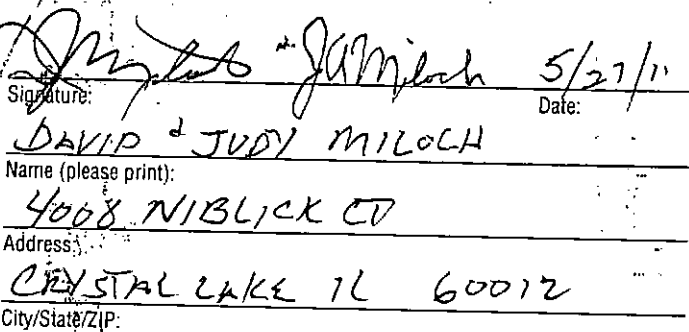 JAMiloch 5/27/11
Signature: Date:
DAVID & JUDY MILOCH
Name (please print):
4008 NIBLICK CT
Address:
CRYSTAL LAKE IL 60012
City/State/ZIP: